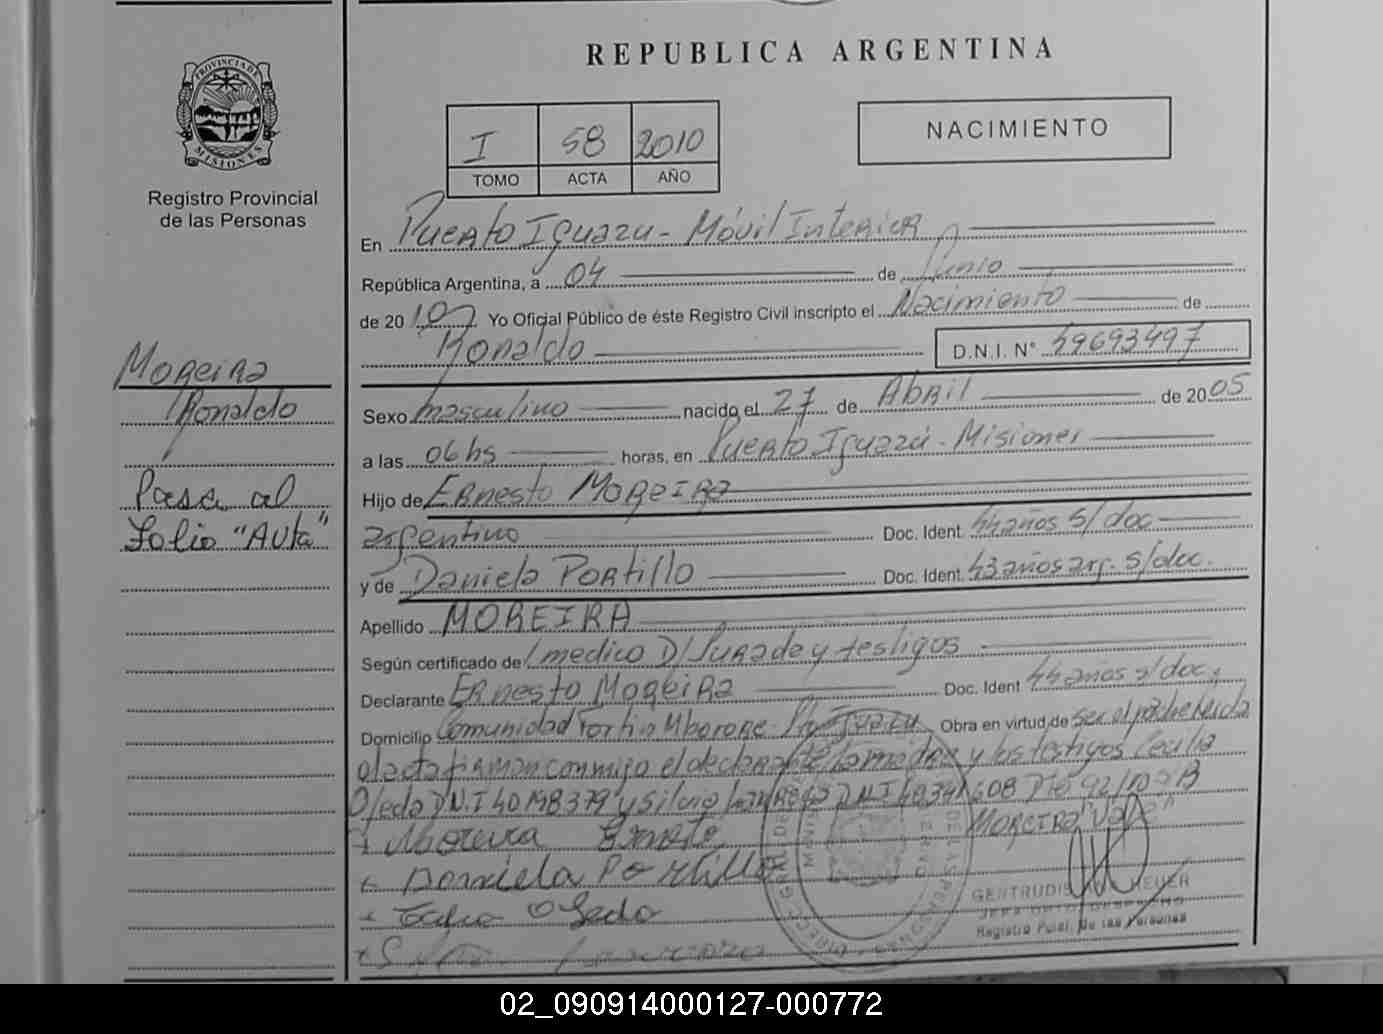 REPUBLICA ARGENTINA
PROVINCIA DE
MISIONES
Registro Provincial
de las Personas
I 58 2010
TOMO ACTA AÑO
NACIMIENTO
En Puerto Iguazu - Móvil Interior
República Argentina, a 04 de Junio
de 2010 Yo Oficial Público de éste Registro Civil inscripto el Nacimiento de
Ronaldo D.N.I. N° 49693497
Moreira
Ronaldo
Pasa al
Folio "Avta"
Sexo masculino nacido el 27 de Abril de 2005
a las 06 hs horas, en Puerto Iguazú - Misiones
Hijo de Ernesto Moreira
argentino Doc. Ident. 44 años s/doc
y de Daniela Portillo Doc. Ident. 43 años arg. s/doc.
Apellido MOREIRA
Según certificado de medico D/ y testigos
Declarante Ernesto Moreira Doc. Ident 44 años s/doc.
Domicilio Comunidad Fortin Mborore - Pto Iguazu Obra en virtud de ser el padre Leida
el acta firman conmigo el declarante, la madre y los testigos Cecilia
Ojeda D.N.I 40198379 y Silvio D.N.I
MOREIRA "Vale"
+ Moreira Ernesto
+ Daniela Portillo
+ Ojeda
GERTRUDIS
Registro Pcial. De las Personas
02_090914000127-000772